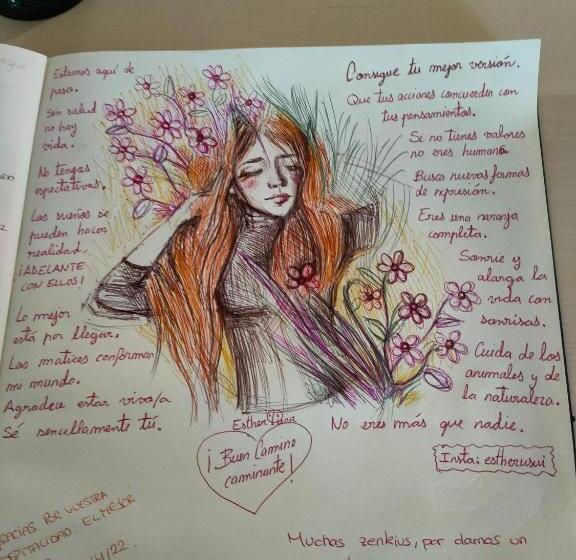 Estamos aquí de
paso.
Sin salud
no hay
vida.
No tengas
espectativas.
Los sueños se
pueden hacer
realidad.
¡ADELANTE
CON ELLOS!
Lo mejor
está por llegar.
Los matices conforman
mi mundo.
Agradece estar vivo/a
Sé sencillamente tú.
Consigue tu mejor versión.
Que tus acciones concuerden con
tus pensamientos.
Si no tienes valores
no eres humano
Busca nuevas formas
de expresión.
Eres una naranja
completa.
Sonríe y
alarga la
vida con
sonrisas.
Cuida de los
animales y de
la naturaleza.
No eres más que nadie.
Esther
¡Buen Camino
caminante!
Insta: estherusui
GRACIAS POR VUESTRA
HOSPITALIDAD. EL MEJOR
/22.
Muchas zenkius, por darnos un